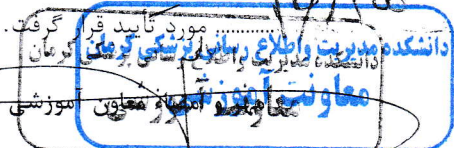 ........ مورد تأیید قرار گرفت.
دانشکده مدیریت و اطلاع رسانی پزشکی کرمان
معاونت آموزشی
مهر و امضاء معاون آموزشی